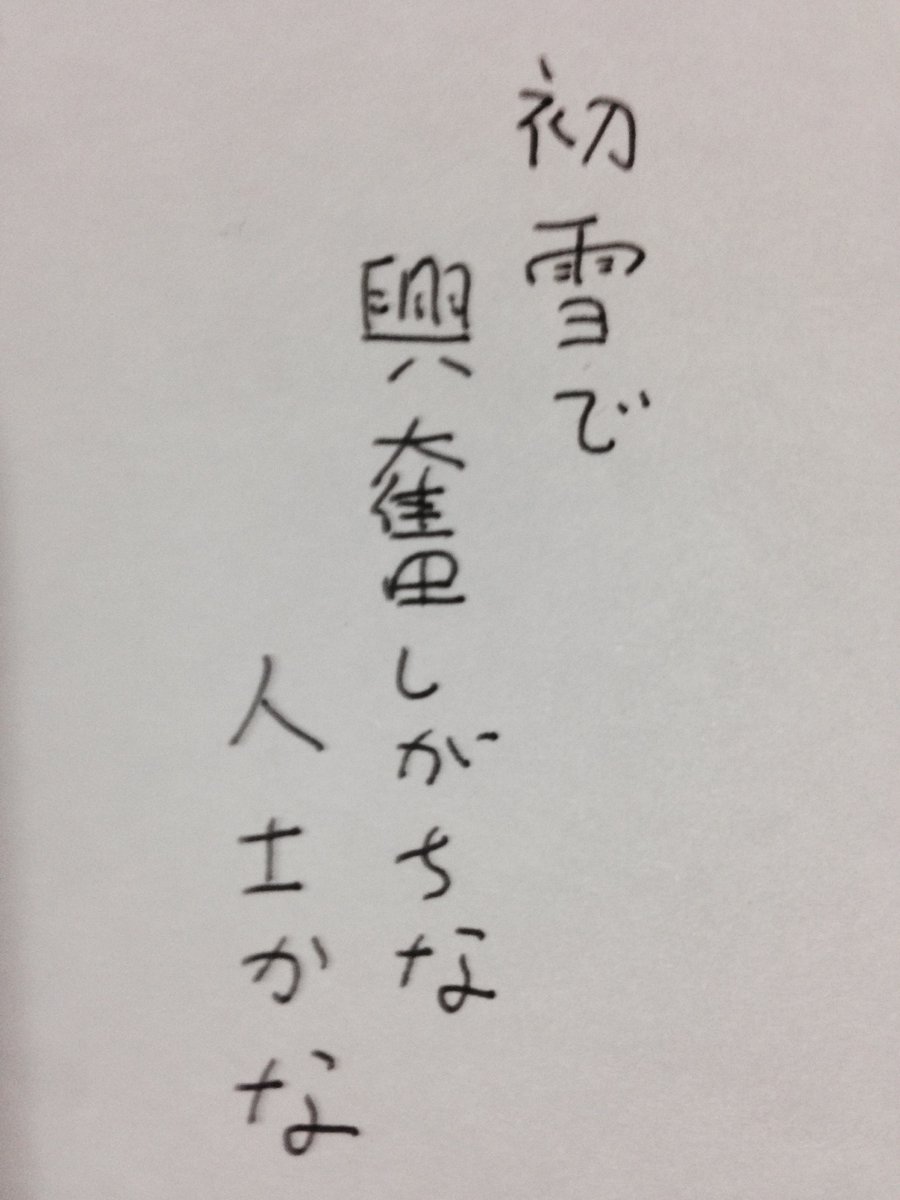 初雪で
興奮しがちな
人士かな